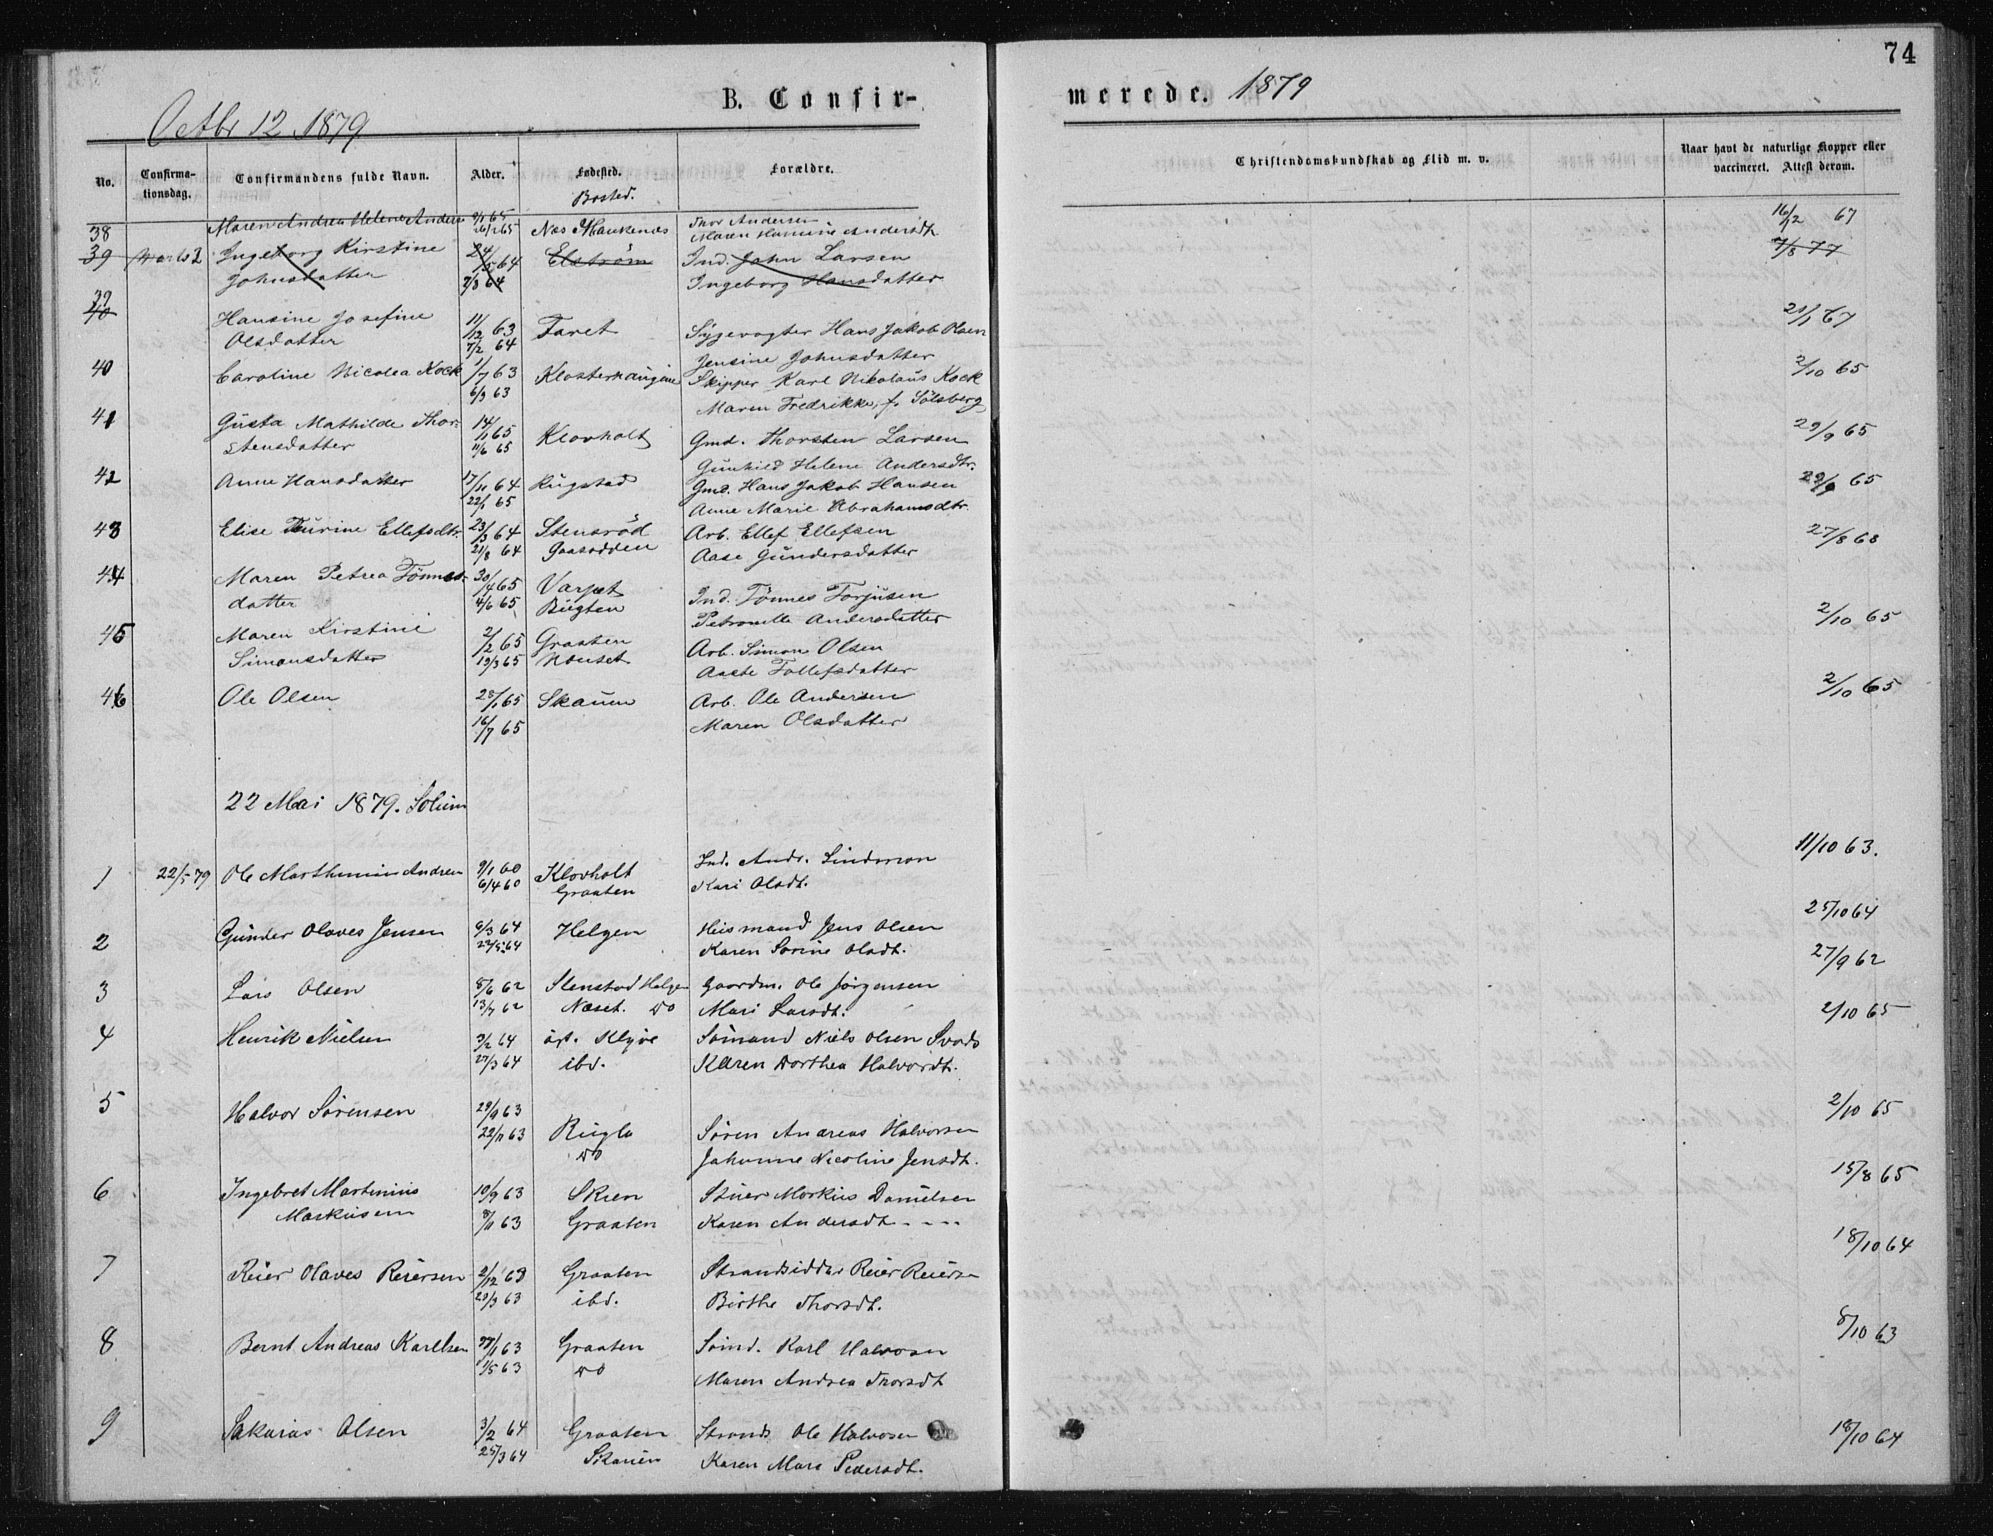 74
B. Confir-
merede. 1879
Octbr 12. 1879
No.
Confirma-
tionsdag.
Confirmandens fulde Navn.
Alder.
Fødested.
Bosted.
Forældre.
Christendomskundskab og Flid m. v.
Naar havt de naturlige Kopper eller
vaccineret. Attest derom.
38 Maren Andrea Helene Anders 9/1 65 Næs Thor Andersen 16/12 67
Maren Andersdt
39 Ingeborg Kirstine 24/5 64 Elstrøm Ind. John Larsen 7/8 77
Johnsdatter 2/3 64 Ingeborg Hansdatter
39
40 Hansine Josefine 11/12 63 Faret Sygevogter Hans Jakob Olsen 21/1 67
Olsdatter 7/2 64 Jensine Johnsdatter
40 Caroline Nicolea Kock 1/7 63 Klosterhaugen Skipper Karl Nikolaus Kock 2/10 65
6/9 63 Maren Fredrikke, f. Sølsberg
41 Gusta Mathilde Thor- 14/1 65 Klovholt Gmd. Thorsten Larsen 29/9 65
stensdatter 11/6 65 Gunhild Helene Andersdtr.
42 Anne Hansdatter 17/10 64 Rugstad Gmd. Hans Jakob Hansen 29/9 65
22/1 65 Anne Marie Abrahamsdtr.
43 Elise Turine Ellefsdtr. 23/3 64 Stensrød Arb. Ellef Ellefsen 27/8 68
21/8 64 Gaasodden Aase Gundersdatter
44 Maren Petrea Tønnes- 30/4 65 Varpet Ind. Tønnes Torjusen
datter 4/6 65 Bugten Petronille Andersdatter 2/10 65
45 Maren Kirstine 2/2 65 Graaten Arb. Simon Olsen
Simonsdatter 19/3 65 Aaste Tollefsdatter
46 Ole Olsen 28/1 65 Skauen Arb. Ole Andersen 2/10 65
16/7 65 Maren Olsdatter
22 Mai 1879. Solum
1 22/5 79 Ole Marthinius Andrsen 9/1 60 Klovholt Ind. Andr. Simonsen 11/10 63.
6/4 60 Graaten Kari Olsdt.
2 Gunder Olaves Jensen 6/3 64 Helgen Huismand Jens Olsen 25/10 64
22/5 64 Karen Sorine Olsdt.
3 Lars Olsen 8/6 62 Stenstad Helgen Gaardm. Ole Jørgensen 27/9 62
13/7 62 Næset. do Mari Larsdt.
4 Henrik Nielsen 3/2 64 øst. Klyve Sømand Niels Olsen 2/10 65
27/3 64 ibd. Karen Dorthea Halvordt.
5 Halvor Sørensen 29/9 63
22/11 63 Rugla Søren Andreas Halvorsen 2/10 65
do Johanne Nicoline Jensdt.
6 Ingebret Martinius 10/9 63 Skien Stuer Markus Danielsen 15/8 65
Markusen 8/11 63 Graaten Karen Andersdt - - - -
7 Reier Olaves Reiersen 2/12 63 Graaten Strandsidder Reier Reiersen 18/10 64
29/3 63 ibd. Birthe Thorsdt.
8 Bernt Andreas Karlsen 27/1 63 Graaten Sømd. Karl Halvorsen 8/10 63
1/5 63 do Maren Andrea Thorsdt
9 Sakarias Olsen 3/2 64 Graaten Strands Ole Halvorsen 18/10 64
25/3 64 Skauen Karen Mari Pedersdt.